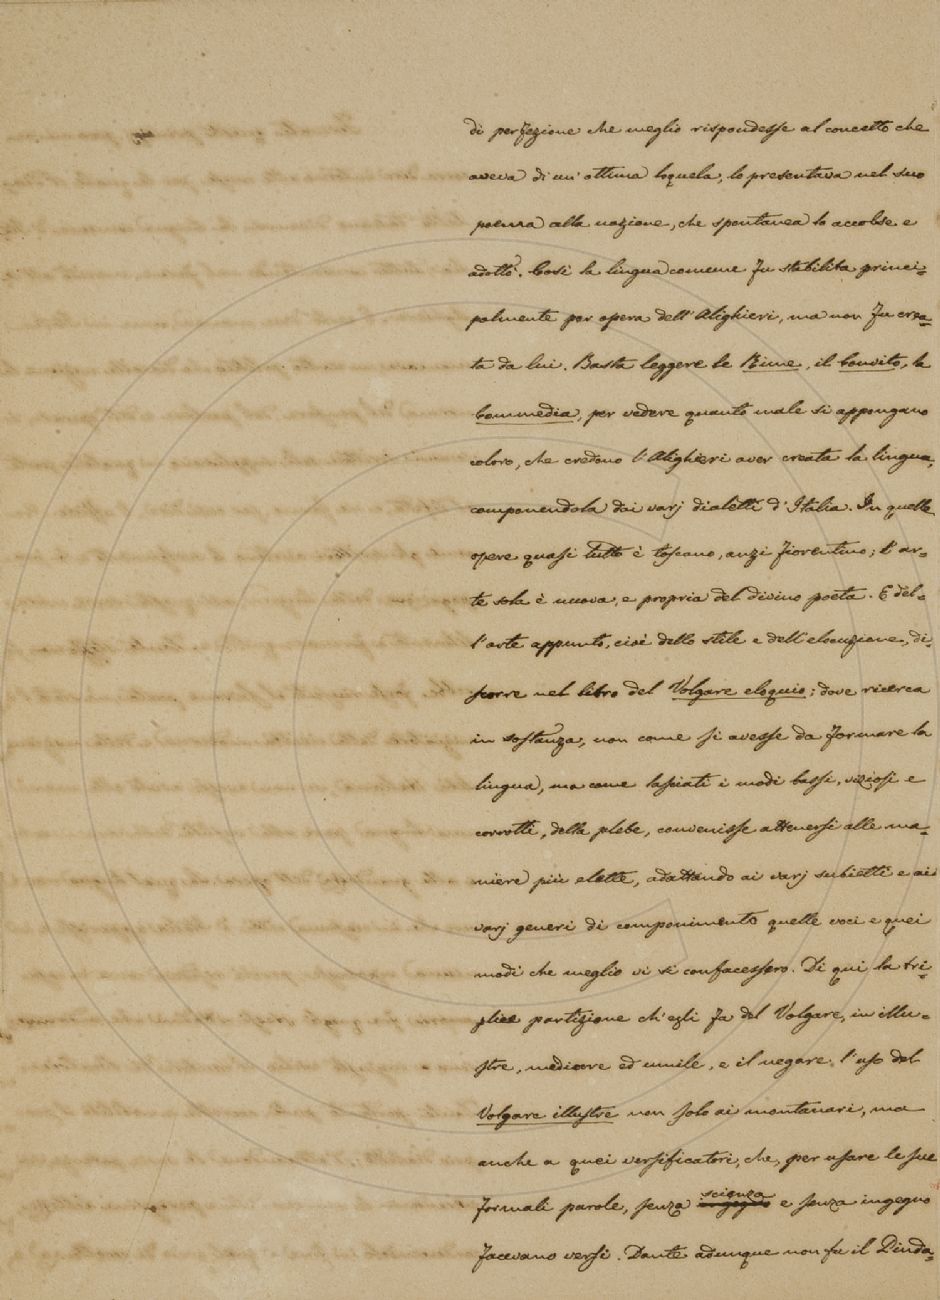 di perfezione che meglio rispondesse al concetto che
aveva di un' ottima loquela, lo presentava nel suo
poema alla nazione, che spontanea lo accolse e
adottò. Così la lingua comune fu stabilita princi=
palmente per opera dell'Alighieri, ma non fu crea=
ta da lui. Basta leggere le Rime, il Convito, la
Commedia, per vedere quanto male si appongano
coloro, che credono l'Alighieri aver creata la lingua,
componendola dai varj dialetti d'Italia. In quelle
opere quasi tutto è toscano, anzi fiorentino; l'ar=
te sola è nuova, e propria del divino poeta. E del=
l'arte appunto, cioè dello stile e dell'elocuzione, di=
scorre nel libro del Volgare eloquio; dove ricerca
in sostanza, non come si avesse da formare la
lingua, ma come lasciati i modi bassi, viziosi e
corrotti, della plebe, convenisse attenersi alle ma=
niere più elette, adattando ai varj subietti e ai
varj generi di componimento quelle voci e quei
modi che meglio vi si confacessero. Di qui la tri=
plice partizione ch'egli fa del Volgare, in illu=
stre, mediocre ed umile, e il negare l'uso del
Volgare illustre non solo ai montanari, ma
anche a quei versificatori, che, per usare le sue
formali parole, senza scienza e senza ingegno
facevano versi. Dante adunque non fu il Pinda=